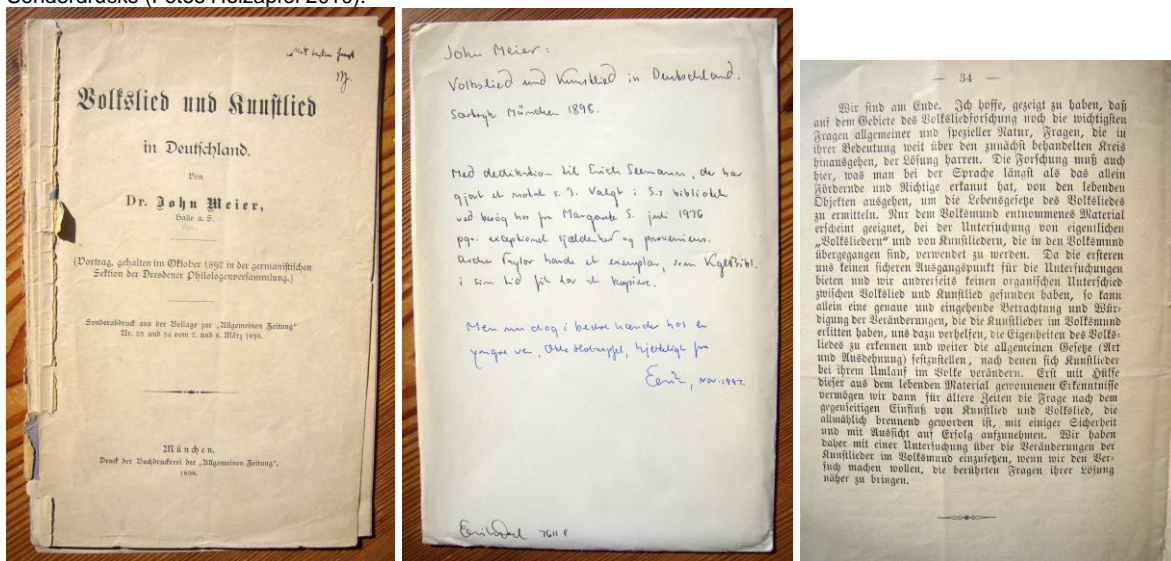 Sonderdrucks (Fotos Holzapfel 2010).
Mit besten
Volkslied und Kunstlied
in Deutschland.
Von
Dr. John Meier,
Halle a. S.
(Vortrag, gehalten im Oktober 1897 in der germanistischen
Sektion der Dresdener Philologenversammlung.)
Sonderabdruck aus der Beilage zur „Allgemeinen Zeitung“
Nr. 53 und 54 vom 7. und 8. März 1898.
München.
Druck der Buchdruckerei der „Allgemeinen Zeitung“.
1898.
John Meier:
Volkslied und Kunstlied in Deutschland.
München 1898.
Med dedikation til Erich Seemann, der har
gjort et notat s. 3. Valgt i S.s bibliotek
ved besøg hos fru Margarete S. juli 1976
pgr. exceptionel sjældenhed og proveniens.
Archer Taylor havde et exemplar, som Kgl. Bibl.
i sin tid fik lov at kopiere.
Men nu dog i bedre hænder hos en
yngre ven, Otto Holzapfel, hjerteligt fra
Erik, nov. 1997.
Erik Dal
— 34 —
Wir sind am Ende. Ich hoffe, gezeigt zu haben, daß
auf dem Gebiete des Volksliedforschung noch die wichtigsten
Fragen allgemeiner und spezieller Natur, Fragen, die in
ihrer Bedeutung weit über den zunächst behandelten Kreis
hinausgehen, der Lösung harren. Die Forschung muß auch
hier, was man bei der Sprache längst als das allein
Fördernde und Richtige erkannt hat, von den lebenden
Objekten ausgehen, um die Lebensgesetze des Volksliedes
zu ermitteln. Nur dem Volksmund entnommenes Material
erscheint geeignet, bei der Untersuchung von eigentlichen
„Volksliedern“ und von Kunstliedern, die in den Volksmund
übergegangen sind, verwendet zu werden. Da die ersteren
uns keinen sicheren Ausgangspunkt für die Untersuchungen
bieten und wir andrerseits keinen organischen Unterschied
zwischen Volkslied und Kunstlied gefunden haben, so kann
allein eine genaue und eingehende Betrachtung und Wür-
digung der Veränderungen, die die Kunstlieder im Volksmund
erlitten haben, uns dazu verhelfen, die Eigenheiten des Volks-
liedes zu erkennen und weiter die allgemeinen Gesetze (Art
und Ausdehnung) festzustellen, nach denen sich Kunstlieder
bei ihrem Umlauf im Volke verändern. Erst mit Hülfe
dieser aus dem lebenden Material gewonnenen Erkenntnisse
vermögen wir dann für ältere Zeiten die Frage nach dem
gegenseitigen Einfluß von Kunstlied und Volkslied, die
allmählich brennend geworden ist, mit einiger Sicherheit
und mit Aussicht auf Erfolg aufzunehmen. Wir haben
daher mit einer Untersuchung über die Veränderungen der
Kunstlieder im Volksmund einzusetzen, wenn wir den Ver-
such machen wollen, die berührten Fragen ihrer Lösung
näher zu bringen.